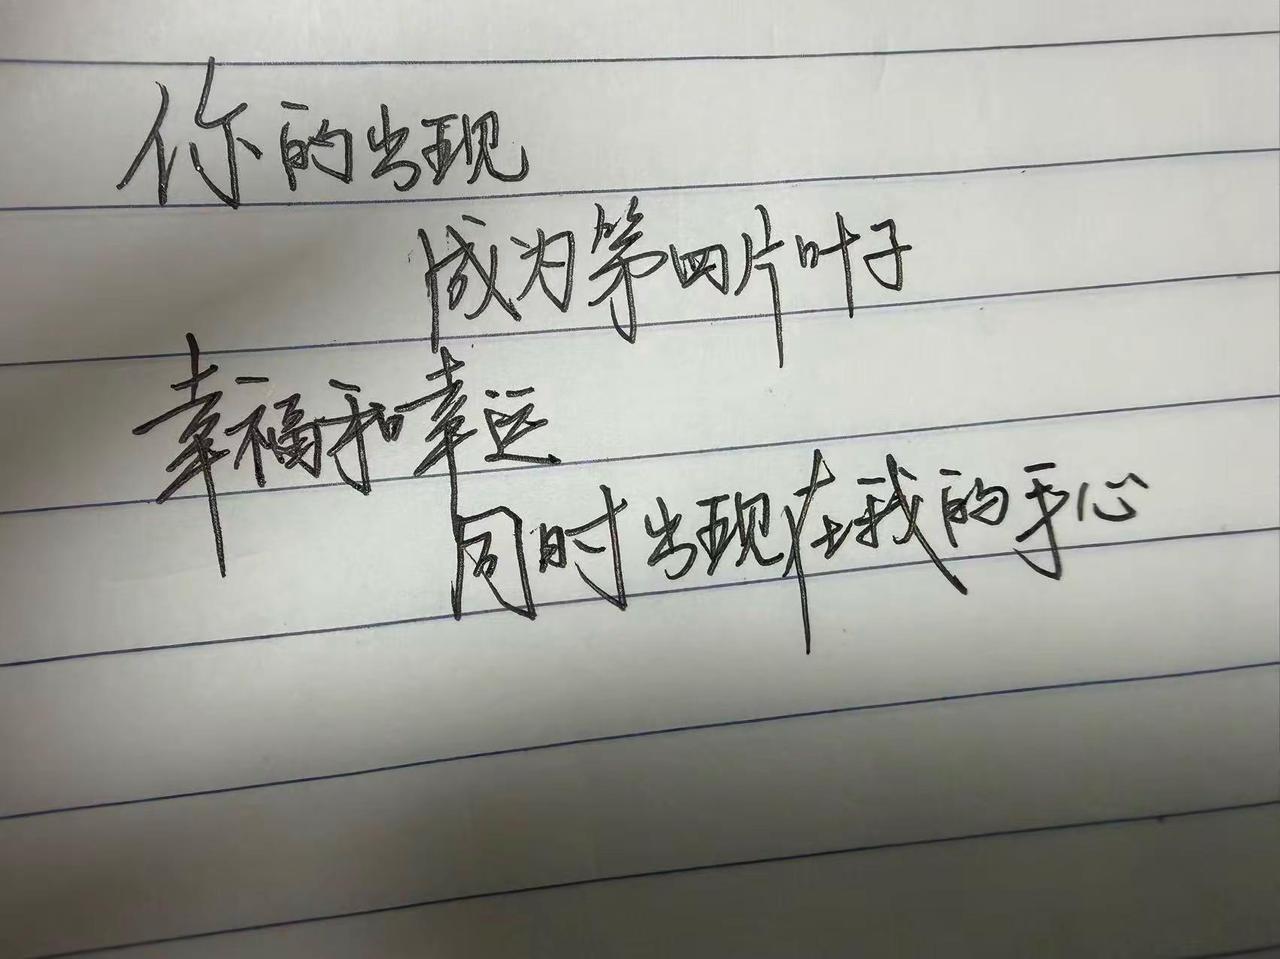 你的出现
成为第四片叶子
幸福和幸运
同时出现在我的手心